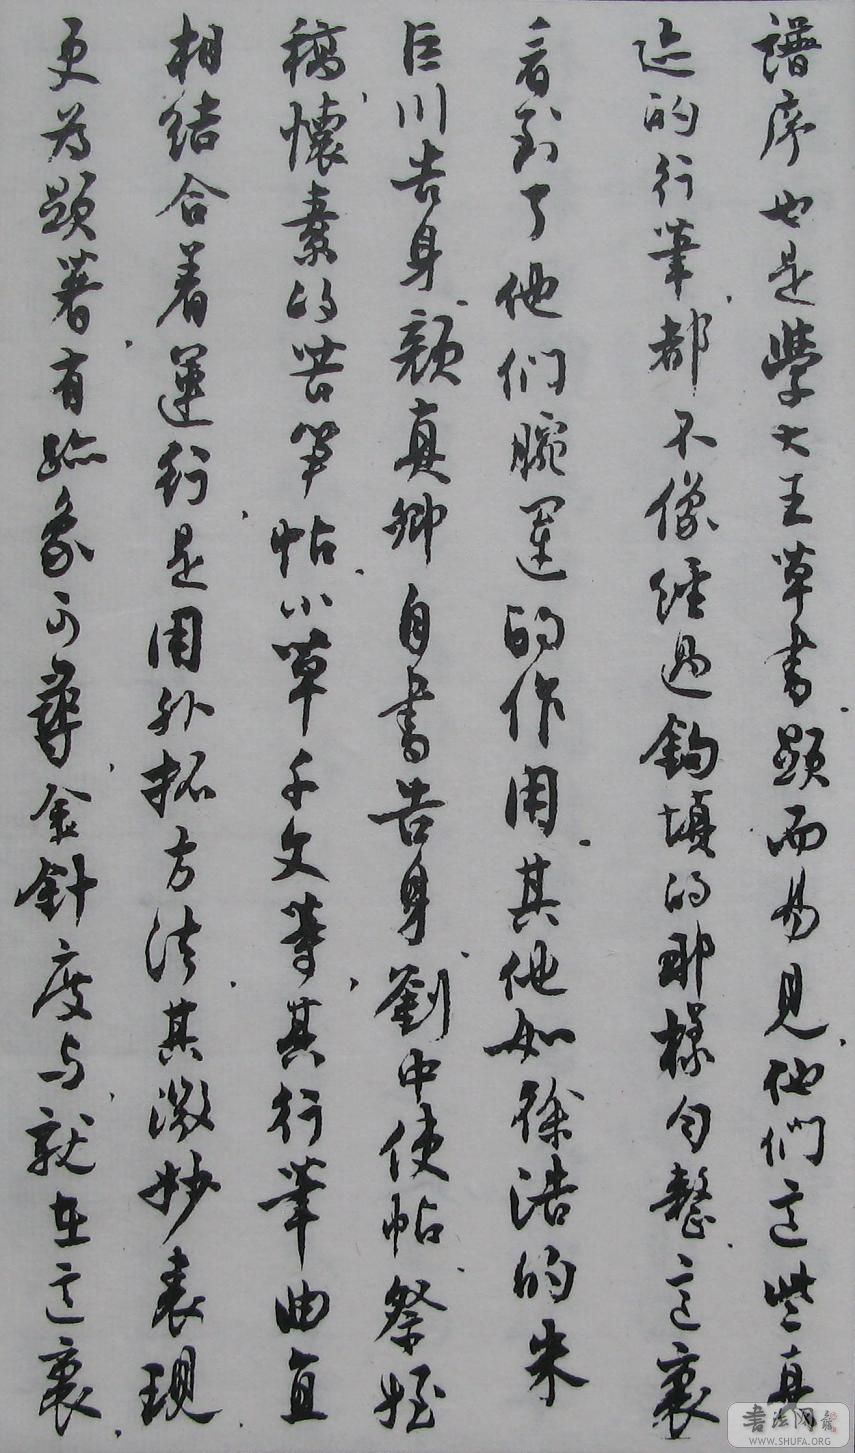 譜序也是學大王草書顯而易見他們這些真
迹的行筆都不像經過鉤填的那樣勻整這裏
看到了他们腕運的作用其他如徐浩的朱
巨川告身顏真卿自書告身劉中使帖祭姪
稿懷素的苦笋帖小草千文等其行筆曲直
相結合着運行是用外拓方法其微妙表現
更為顯著有跡象可尋金針度与就在這裏
書法网
WWW.SHUFA.ORG